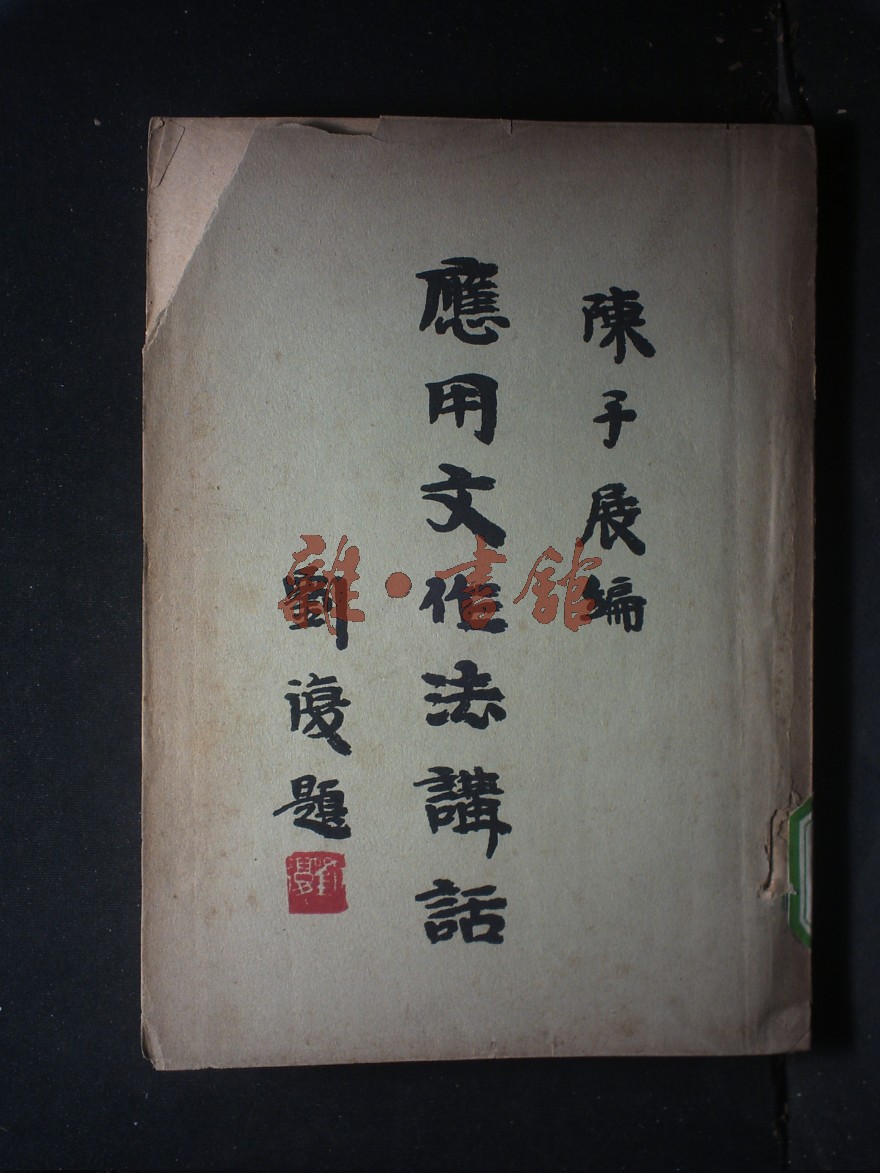 陳子展編
應用文作法講話
劉復題
雜·書館